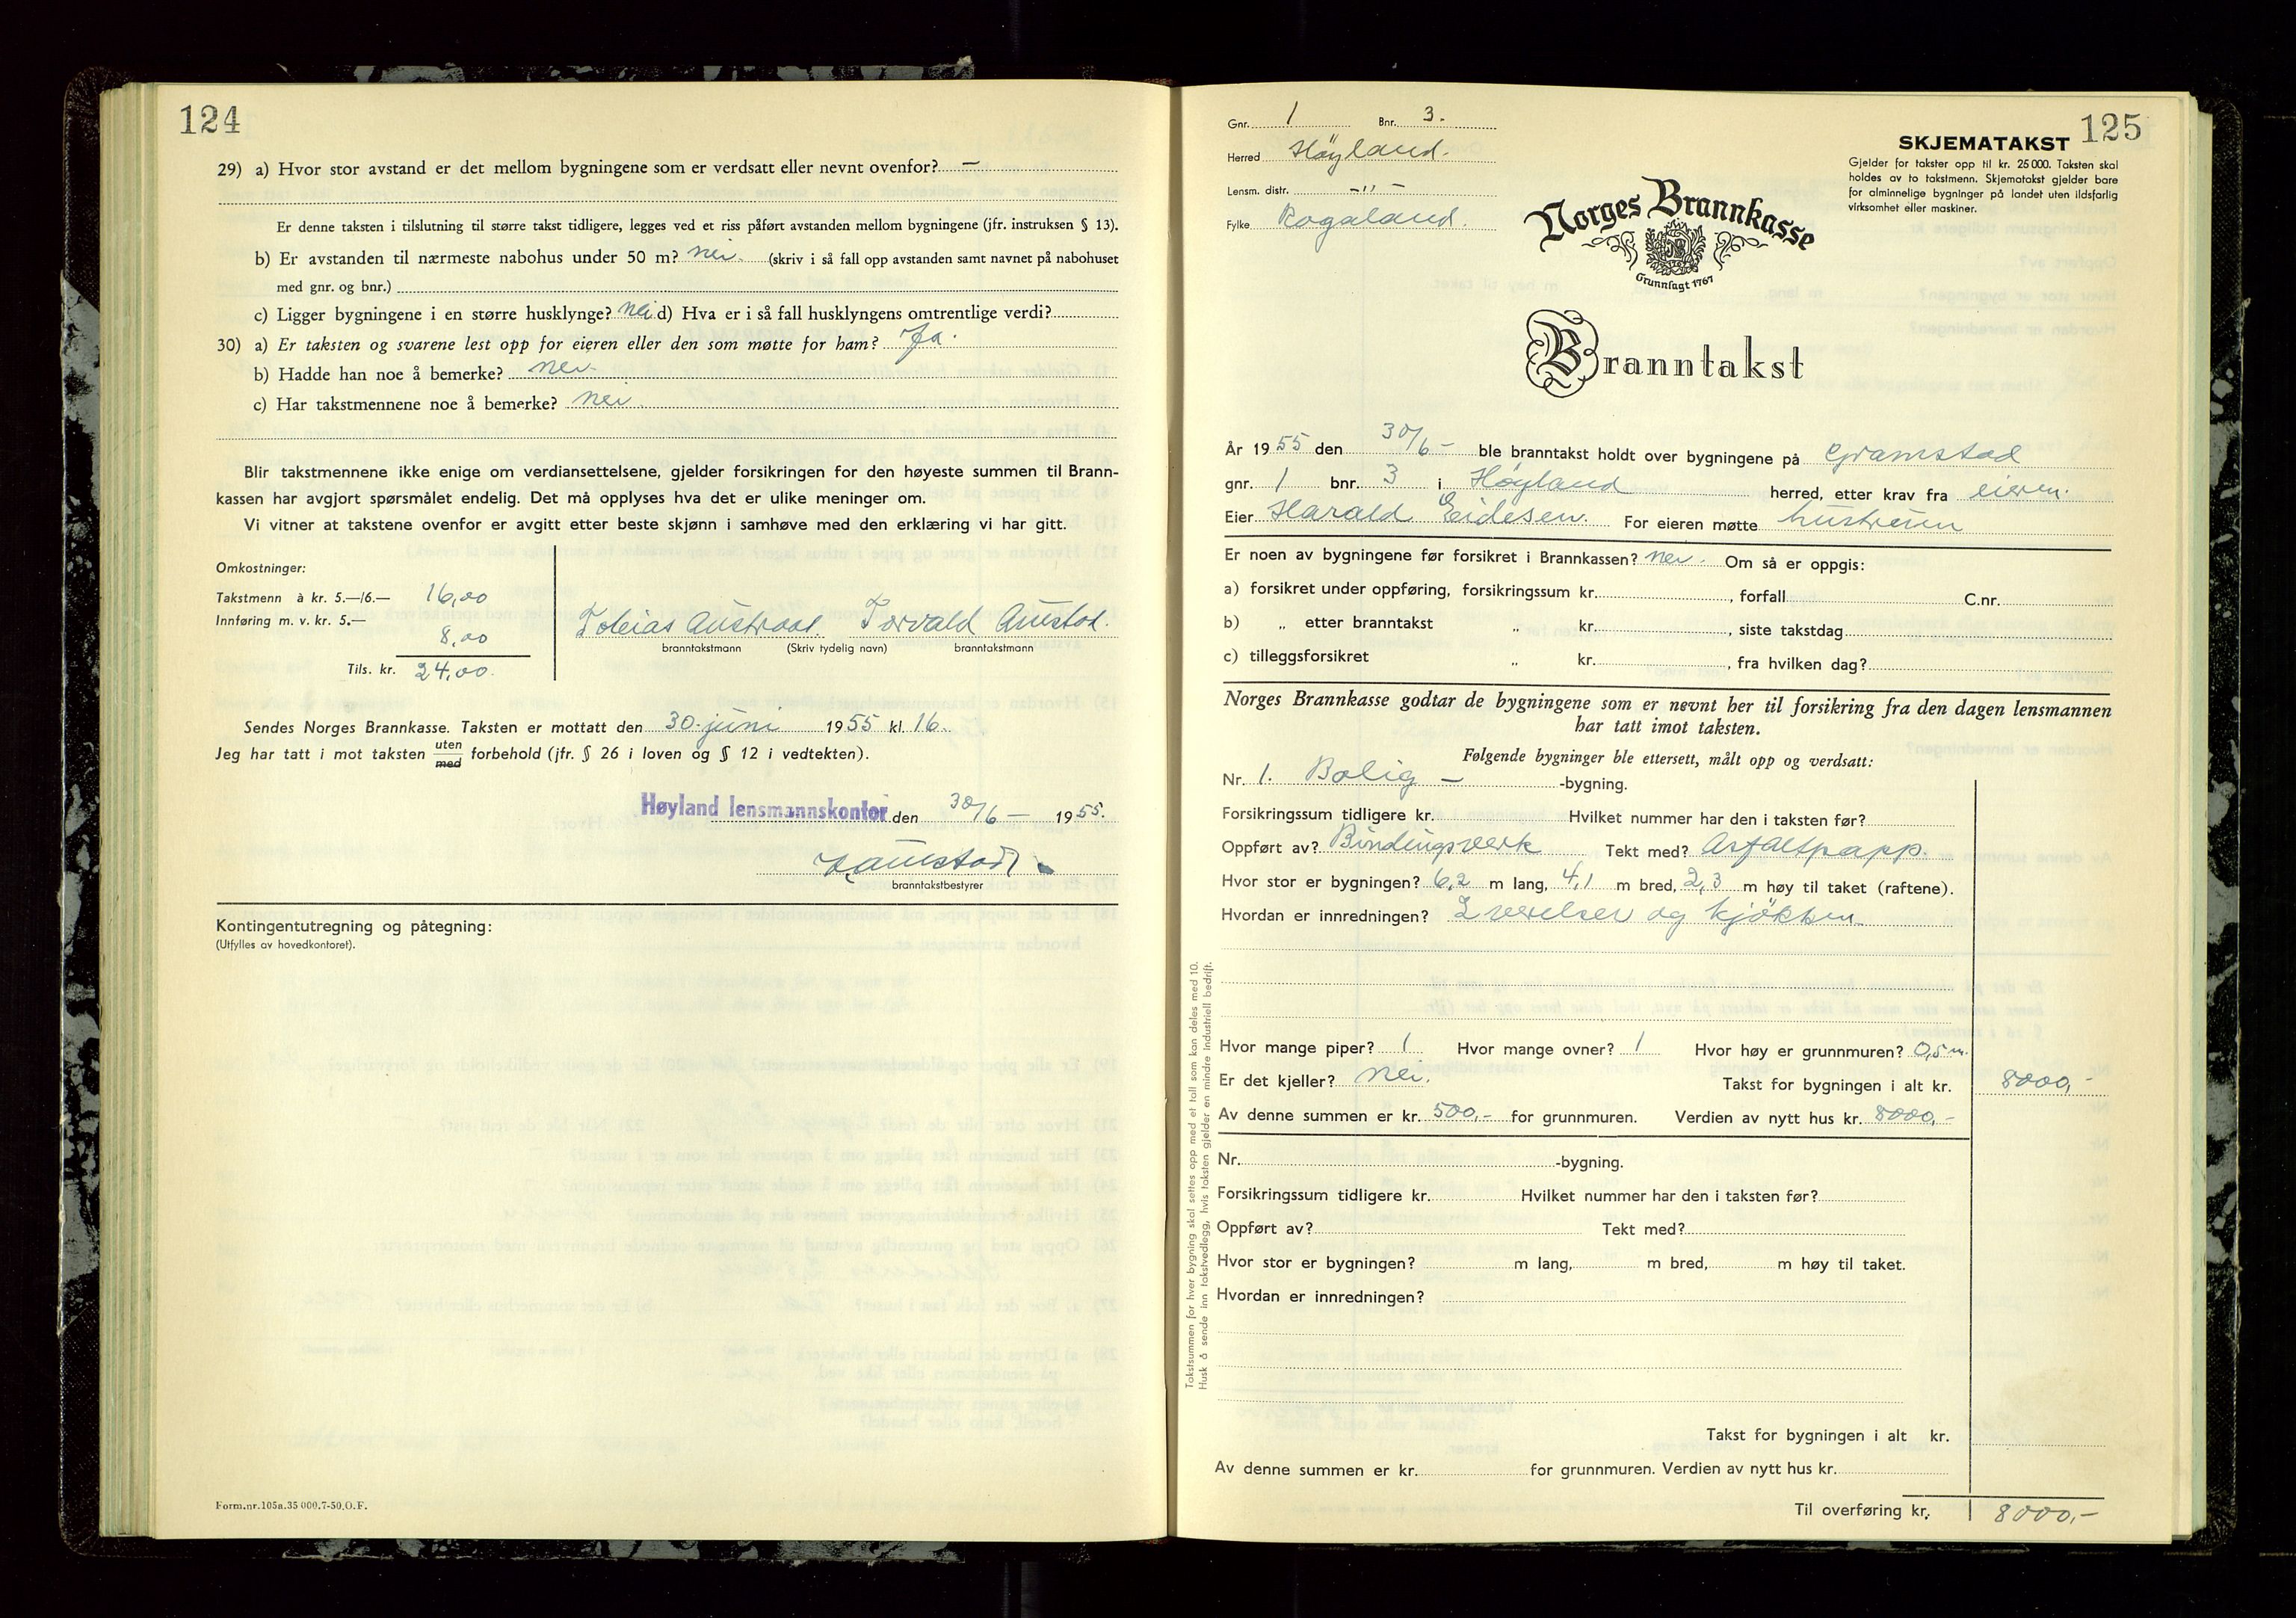 124
29) a) Hvor stor avstand er det mellom bygningene som er verdsatt eller nevnt ovenfor? —
Er denne taksten i tilslutning til større takst tidligere, legges ved et riss påført avstanden mellom bygningene (jfr. instruksen § 13).
b) Er avstanden til nærmeste nabohus under 50 m? nei. (skriv i så fall opp avstanden samt navnet på nabohuset
med gnr. og bnr.)
c) Ligger bygningene i en større husklynge? nei d) Hva er i så fall husklyngens omtrentlige verdi?
30) a) Er taksten og svarene lest opp for eieren eller den som møtte for ham? Ja.
b) Hadde han noe å bemerke? nei.
c) Har takstmennene noe å bemerke? nei.
Blir takstmennene ikke enige om verdiansettelsene, gjelder forsikringen for den høyeste summen til Brann-
kassen har avgjort spørsmålet endelig. Det må opplyses hva det er ulike meninger om.
Vi vitner at takstene ovenfor er avgitt etter beste skjønn i samhøve med den erklæring vi har gitt.
Omkostninger:
Takstmenn à kr. 5.—/6.— 16,00
Innføring m. v. kr. 5.—
8,00
Tils. kr. 24,00.
Tobias Austraat. Torvald Austad.
branntakstmann (Skriv tydelig navn) branntakstmann
Sendes Norges Brannkasse. Taksten er mottatt den 30. juni 1955 kl. 16.
Jeg har tatt i mot taksten uten med forbehold (jfr. § 26 i loven og § 12 i vedtekten).
Høyland lensmannskontor den 30/6 — 1955.
branntakstbestyrer
Kontingentutregning og påtegning:
(Utfylles av hovedkontoret).
Form.nr.105a.35 000.7-50.O.F.
125
Gnr. 1 Bnr. 3.
Herred Höyland.
Lensm. distr. —"—
Fylke Rogaland.
SKJEMATAKST
Gjelder for takster opp til kr. 25 000. Taksten skal
holdes av to takstmenn. Skjematakst gjelder bare
for alminnelige bygninger på landet uten ildsfarlig
virksomhet eller maskiner.
Norges Brannkasse
Grunnlagt 1767
Branntakst
År 1955 den 30/6 — ble branntakst holdt over bygningene på Gramstad
gnr. 1 bnr. 3 i Höyland herred, etter krav fra eieren.
Eier Harald Eidesen. For eieren møtte hustruen
Er noen av bygningene før forsikret i Brannkassen? nei. Om så er oppgis:
a) forsikret under oppføring, forsikringssum kr. , forfall C.nr.
b) „ etter branntakst „ kr. , siste takstdag
c) tilleggsforsikret „ kr. , fra hvilken dag?
Norges Brannkasse godtar de bygningene som er nevnt her til forsikring fra den dagen lensmannen
har tatt imot taksten.
Følgende bygninger ble ettersett, målt opp og verdsatt:
Nr. 1. Bolig — -bygning.
Forsikringssum tidligere kr. Hvilket nummer har den i taksten før?
Oppført av? Bindingsverk Tekt med? Asfaltpapp.
Hvor stor er bygningen? 6,2 m lang, 4,1 m bred, 2,3 m høy til taket (raftene).
Hvordan er innredningen? 2 værelser og kjökken
Hvor mange piper? 1 Hvor mange ovner? 1 Hvor høy er grunnmuren? 0,5 m.
Er det kjeller? nei. Takst for bygningen i alt kr. 8000,-
Av denne summen er kr. 500,- for grunnmuren. Verdien av nytt hus kr. 8000,-
Nr. -bygning.
Forsikringssum tidligere kr. Hvilket nummer har den i taksten før?
Oppført av? Tekt med?
Hvor stor er bygningen? m lang, m bred, m høy til taket.
Hvordan er innredningen?
Takst for bygningen i alt kr.
Av denne summen er kr. for grunnmuren. Verdien av nytt hus kr.
Til overføring kr. 8000,-
Takstsummen for hver bygning skal settes opp med et tall som kan deles med 10.
Husk å sende inn takstvedlegg, hvis taksten gjelder en mindre industriell bedrift.